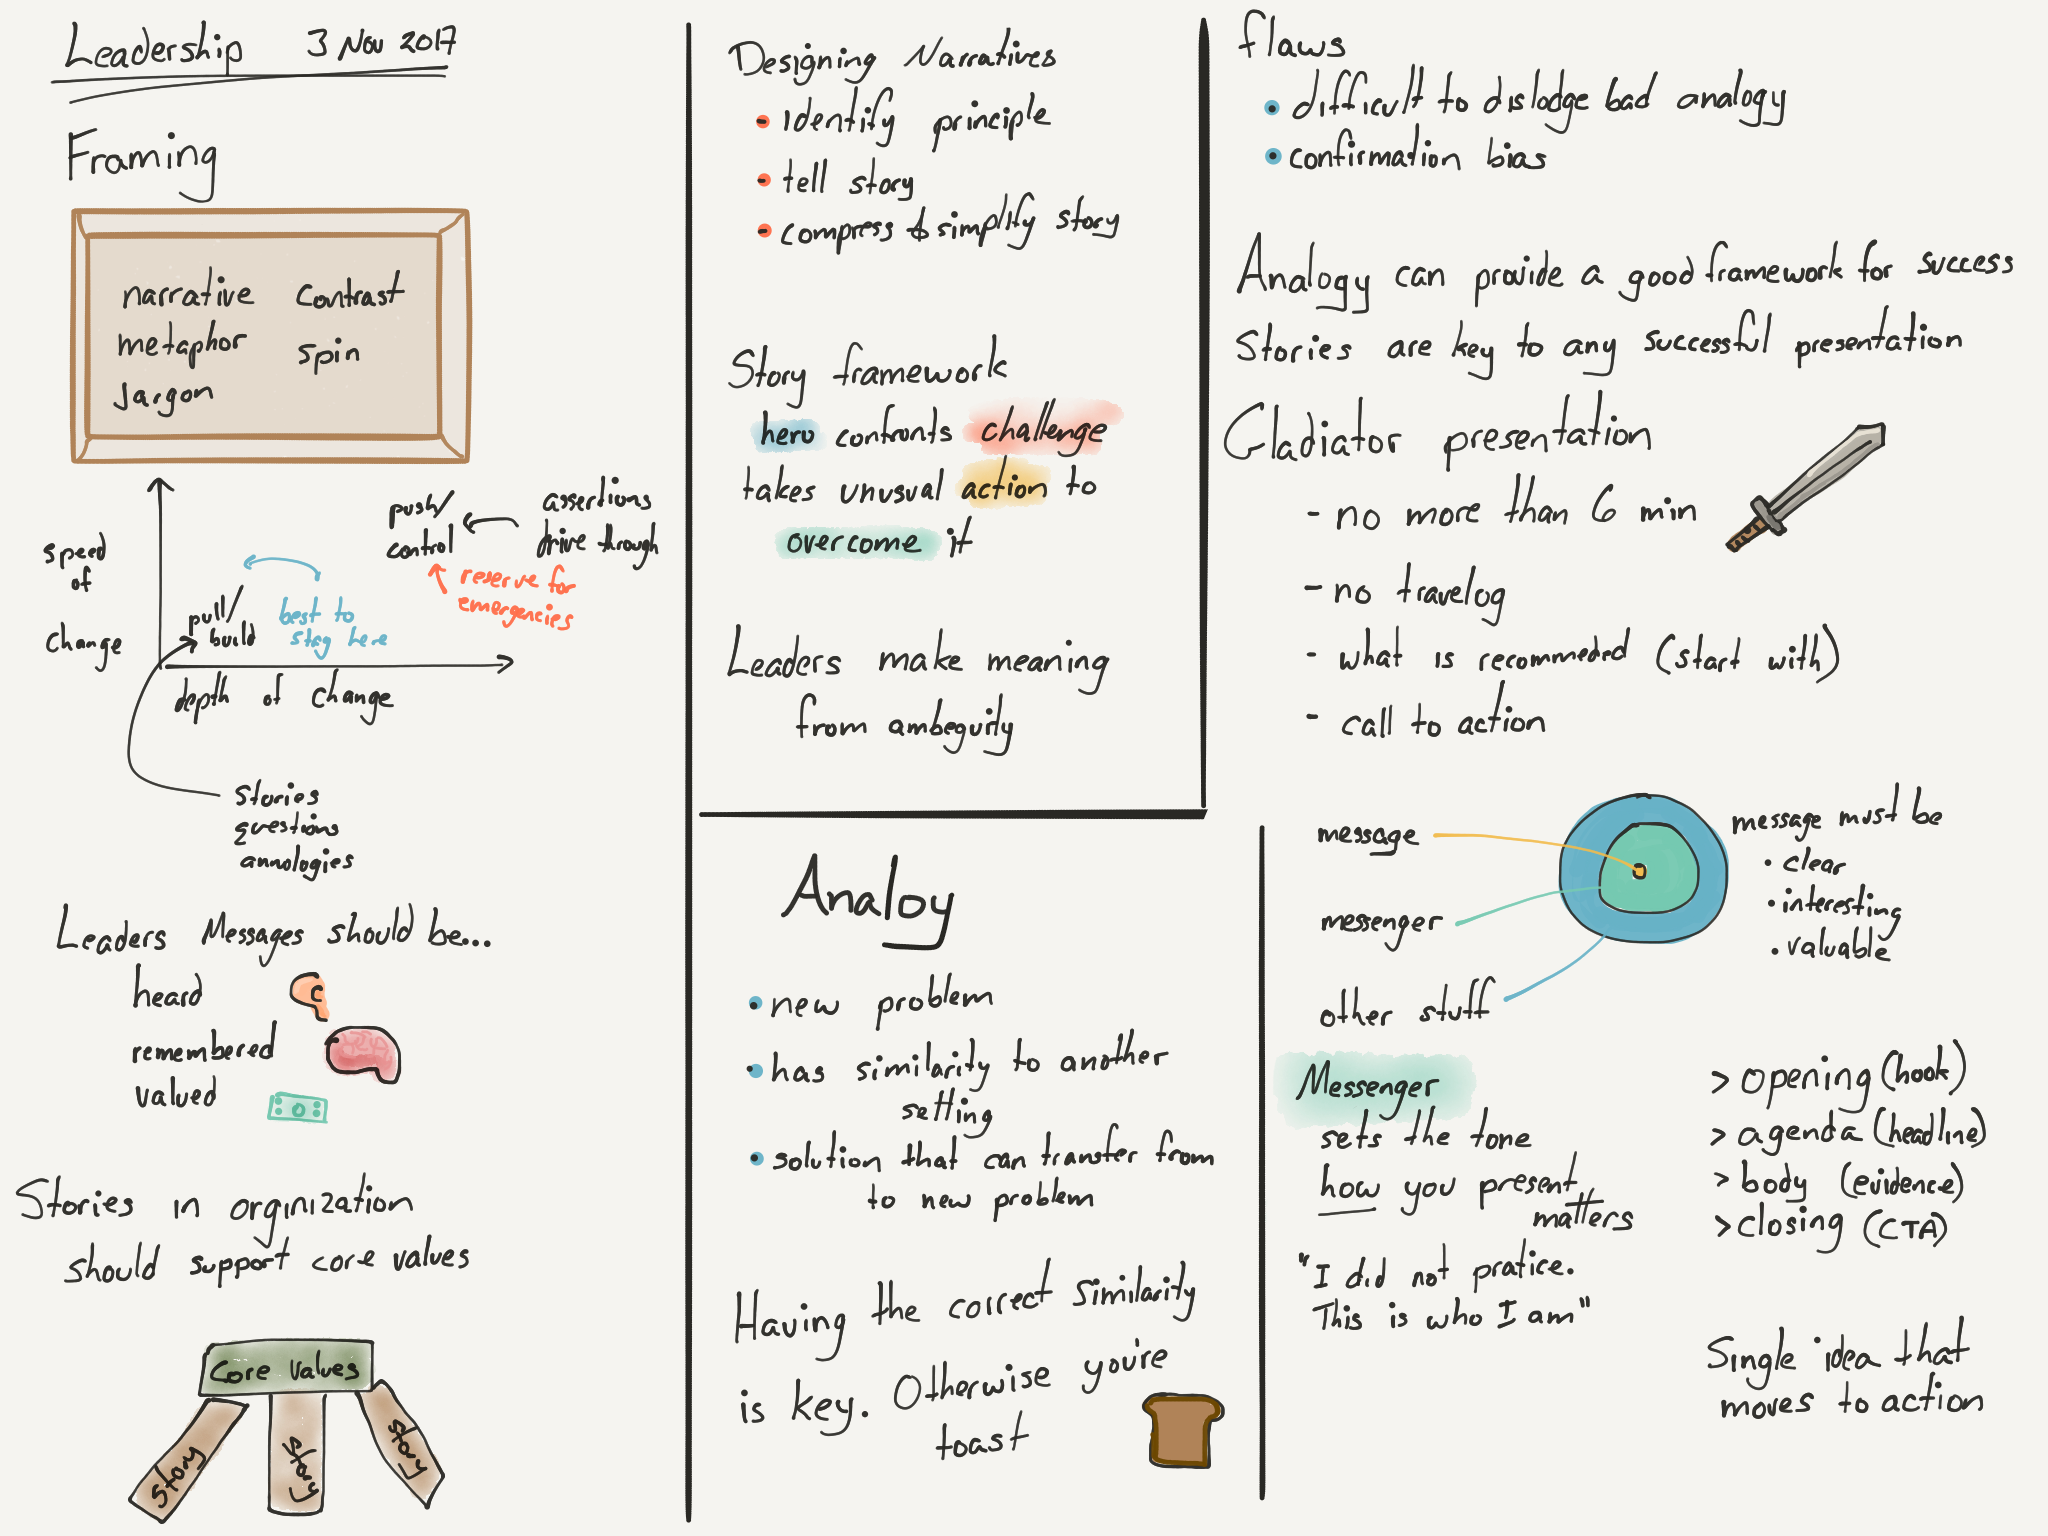 Leadership 3 Nov 2017
Framing
narrative contrast
metaphor spin
Jargon
speed
of
change
push/
control
assertions
drive through
reserve for
emergencies
pull/
build
best to
stay here
depth of change
stories
questions
annologies
Leaders Messages should be...
heard
remembered
valued
Stories in orginization
should support core values
Core Values
story
story
story
Designing Narratives
Identify principle
tell story
compress & simplify story
Story framework
hero confronts challenge
takes unusual action to
overcome it
Leaders make meaning
from ambeguity
Analoy
new problem
has similarity to another
setting
solution that can transfer from
to new problem
Having the correct similarity
is key. Otherwise you're
toast
flaws
difficult to dislodge bad analogy
confirmation bias
Analogy can provide a good framework for success
Stories are key to any successful presentation
Gladiator presentation
- no more than 6 min
- no travelog
- what is recommeded (start with)
- call to action
message
messenger
other stuff
message must be
• clear
• interesting
• valuable
Messenger
sets the tone
how you present
matters
"I did not pratice.
This is who I am"
> opening (hook)
> agenda (headline)
> body (evidence)
> closing (CTA)
Single idea that
moves to action